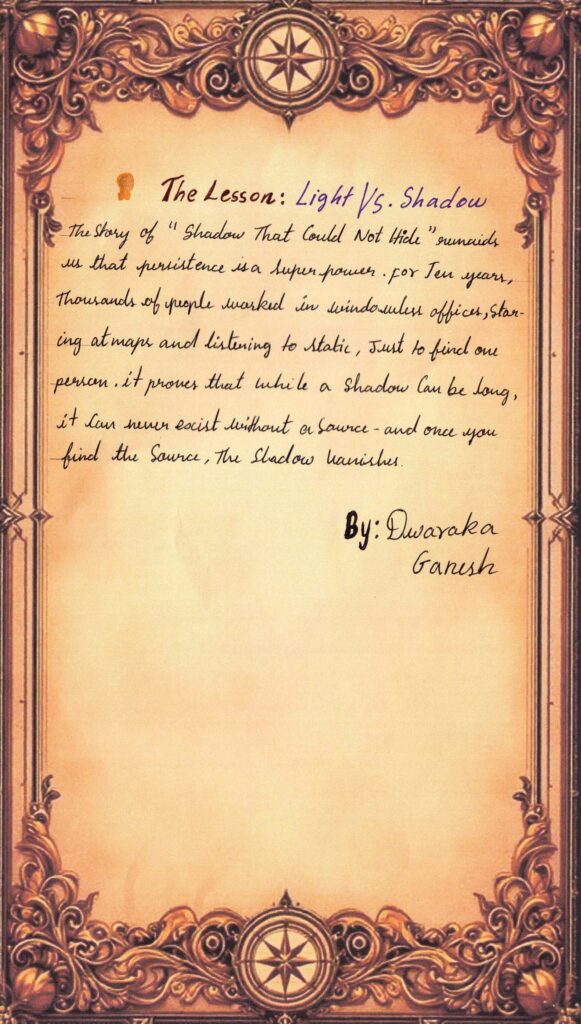 The Lesson: Light Vs. Shadow
The Story of "Shadow That Could Not Hide" remaids
us that persistence is a super power. for Ten years,
Thousands of people worked in windowless offices, star-
ing at maps and listening to static, Just to find one
person. it proves that while a Shadow Can be long,
it can never excist without a Source - and once you
find the Source, The Shadow Vanishes.
By: Dwaraka
Ganesh